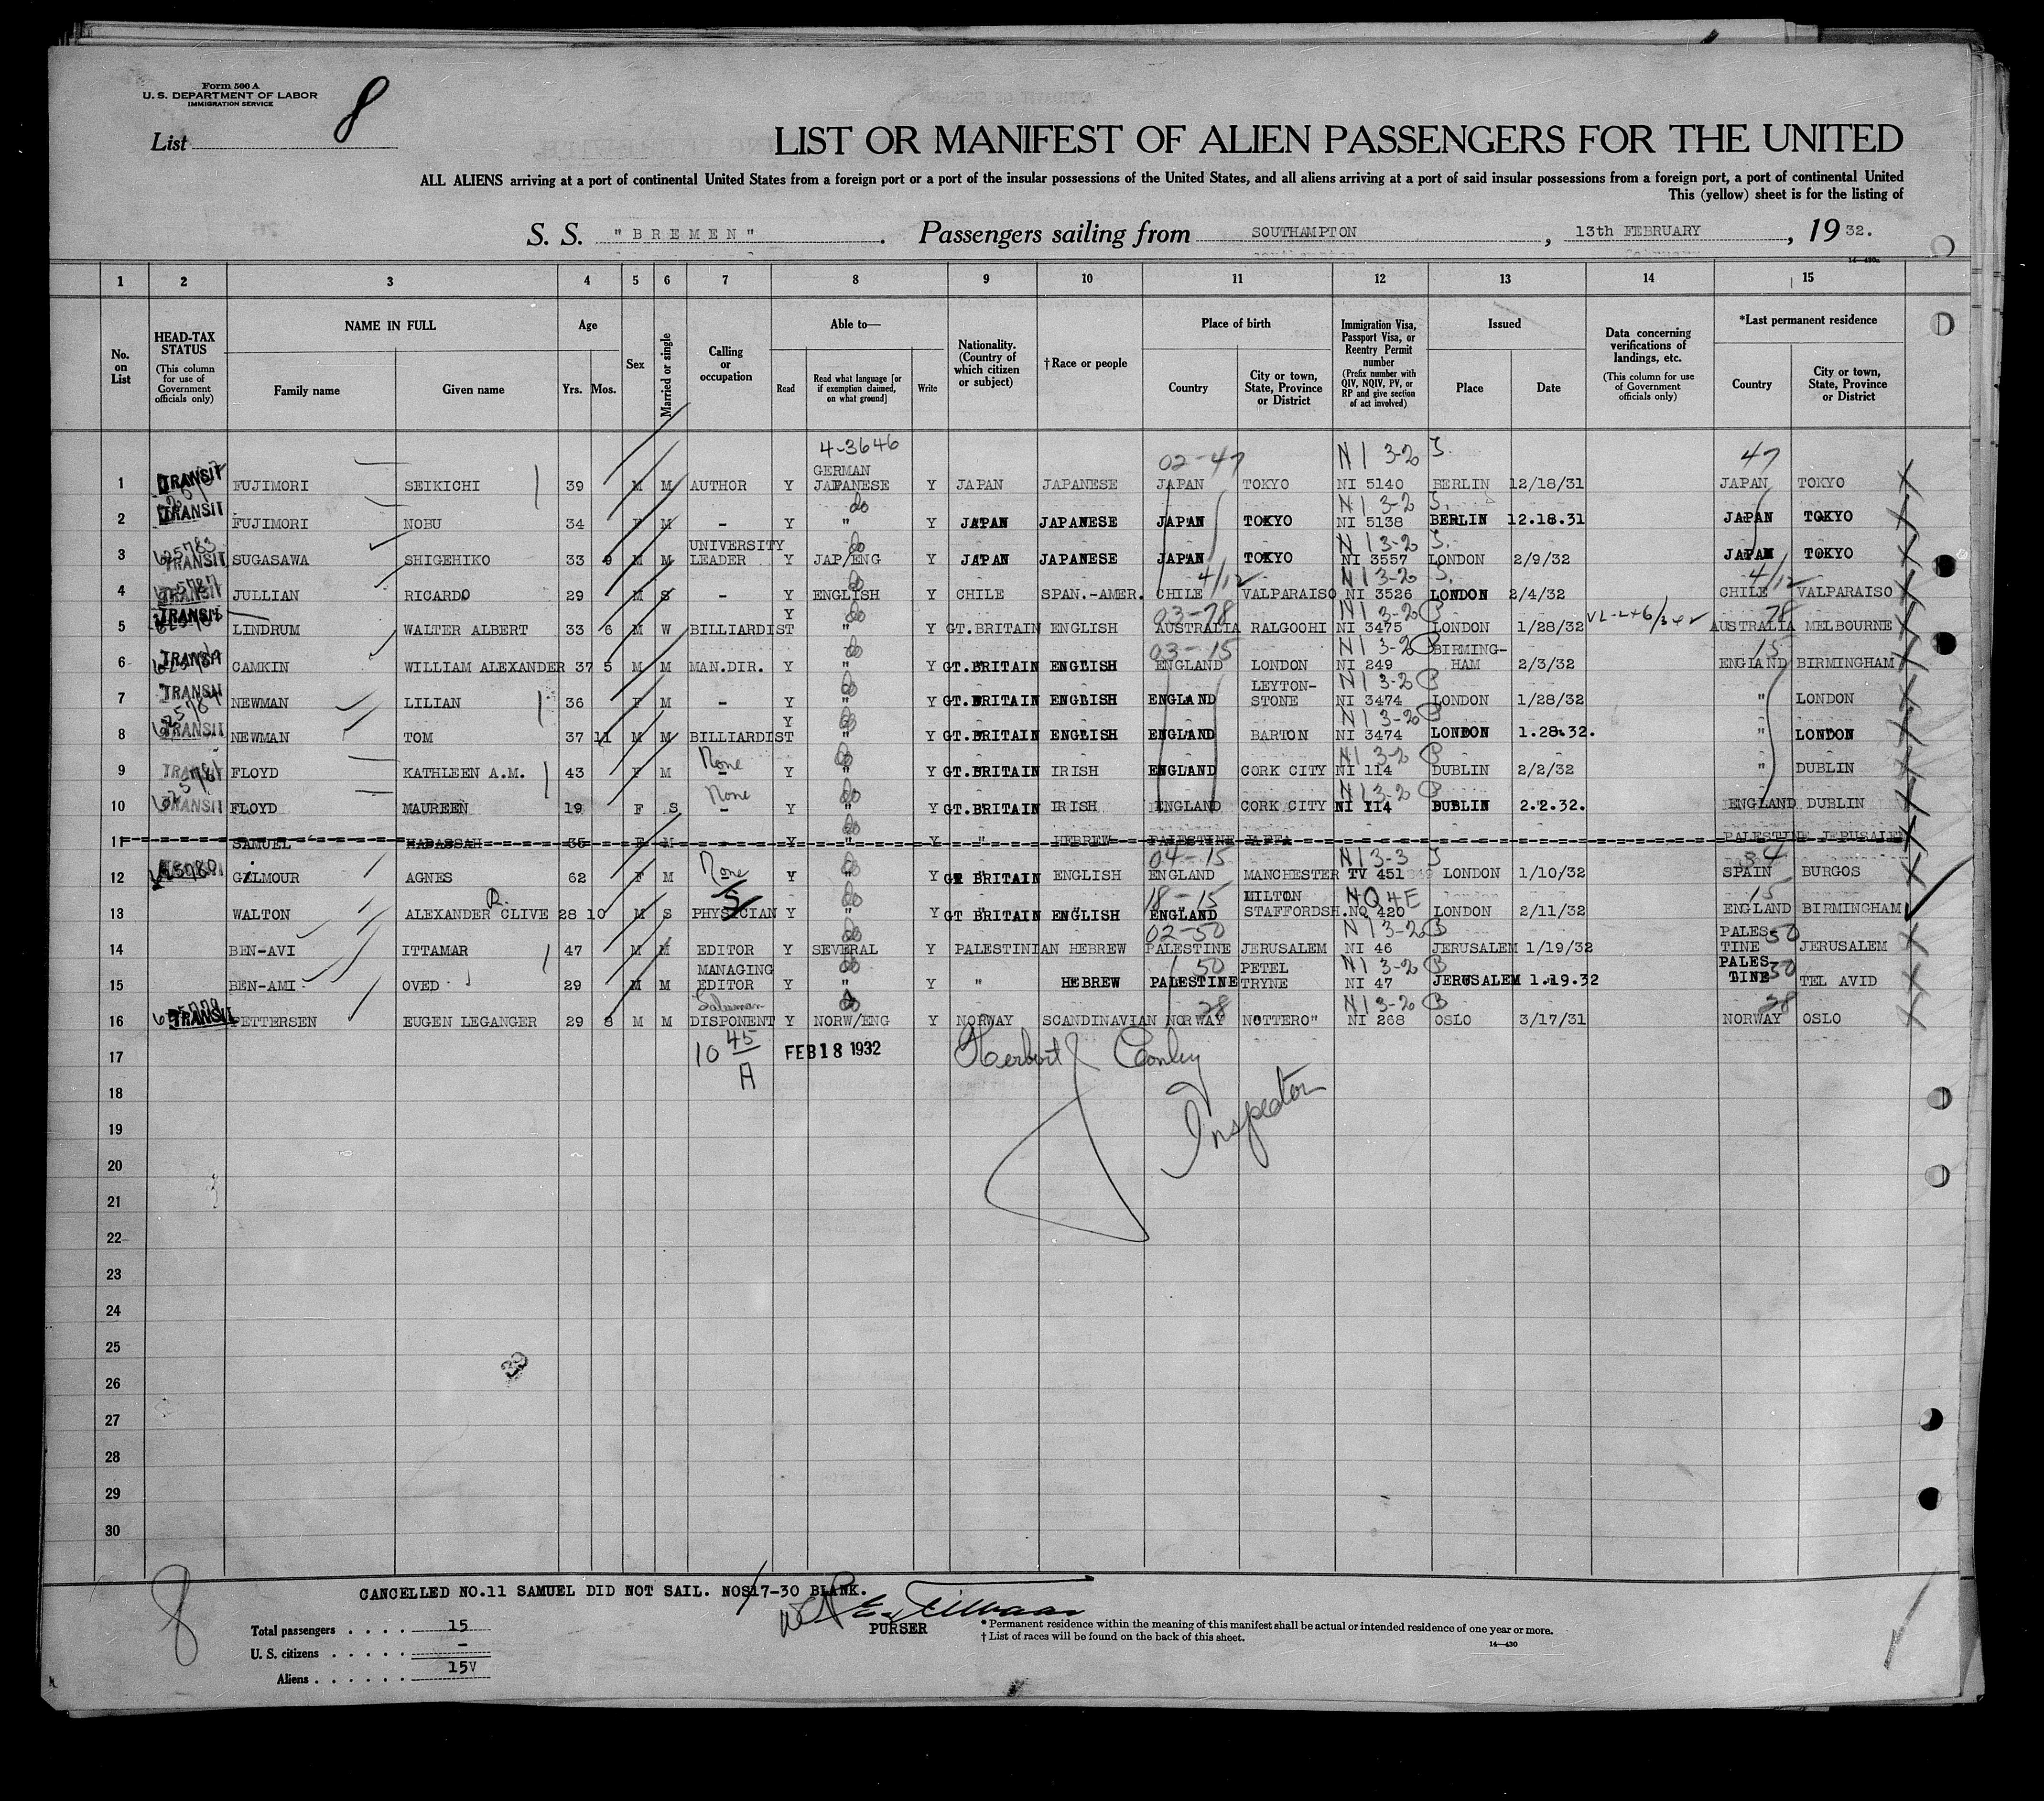 Form 500 A
U. S. DEPARTMENT OF LABOR
IMMIGRATION SERVICE
List 8
LIST OR MANIFEST OF ALIEN PASSENGERS FOR THE UNITED
ALL ALIENS arriving at a port of continental United States from a foreign port or a port of the insular possessions of the United States, and all aliens arriving at a port of said insular possessions from a foreign port, a port of continental United
This (yellow) sheet is for the listing of
S. S. "BREMEN". Passengers sailing from SOUTHAMPTON, 13th FEBRUARY, 1932.
1 2 3 4 5 6 7 8 9 10 11 12 13 14 15
No. on List
HEAD-TAX STATUS (This column for use of Government officials only)
NAME IN FULL Family name Given name
Age Yrs. Mos.
Sex
Married or single
Calling or occupation
Able to— Read Read what language [or if exemption claimed, on what ground] Write
Nationality. (Country of which citizen or subject)
†Race or people
Place of birth Country City or town, State, Province or District
Immigration Visa, Passport Visa, or Reentry Permit number (Prefix number with QIV, NQIV, PV, or RP and give section of act involved)
Issued Place Date
Data concerning verifications of landings, etc. (This column for use of Government officials only)
*Last permanent residence Country City or town, State, Province or District
4-3646 02-47 NI 3-2 47
1 TRANSIT FUJIMORI SEIKICHI 39 M M AUTHOR Y GERMAN JAPANESE Y JAPAN JAPANESE JAPAN TOKYO NI 5140 BERLIN 12/18/31 JAPAN TOKYO
NI 3-2
2 TRANSIT FUJIMORI NOBU 34 F M - Y " Y JAPAN JAPANESE JAPAN TOKYO NI 5138 BERLIN 12.18.31 JAPAN TOKYO
NI 3-2
3 625783 TRANSIT SUGASAWA SHIGEHIKO 33 9 M M UNIVERSITY LEADER Y JAP/ENG Y JAPAN JAPANESE JAPAN TOKYO NI 3557 LONDON 2/9/32 JAPAN TOKYO
4/12 NI 3-2 4/12
4 TRANSIT JULLIAN RICARDO 29 M S - Y ENGLISH Y CHILE SPAN.-AMER. CHILE VALPARAISO NI 3526 LONDON 2/4/32 CHILE VALPARAISO
03-78 NI 3-2 78
5 TRANSIT LINDRUM WALTER ALBERT 33 6 M W BILLIARDIST Y " Y GT.BRITAIN ENGLISH AUSTRALIA RALGOOHI NI 3475 LONDON 1/28/32 AUSTRALIA MELBOURNE
03-15 NI 3-2 15
6 TRANSIT CAMKIN WILLIAM ALEXANDER 37 5 M M MAN.DIR. Y " Y GT.BRITAIN ENGLISH ENGLAND LONDON NI 249 BIRMING-HAM 2/3/32 ENGLAND BIRMINGHAM
NI 3-2
7 TRANSIT NEWMAN LILIAN 36 F M - Y " Y GT.BRITAIN ENGLISH ENGLAND LEYTON-STONE NI 3474 LONDON 1/28/32 " LONDON
NI 3-2
8 TRANSIT NEWMAN TOM 37 11 M M BILLIARDIST Y " Y GT.BRITAIN ENGLISH ENGLAND BARTON NI 3474 LONDON 1.28.32. " LONDON
NI 3-2
9 TRANSIT FLOYD KATHLEEN A.M. 43 F M None - Y " Y GT.BRITAIN IRISH ENGLAND CORK CITY NI 114 DUBLIN 2/2/32 " DUBLIN
NI 3-2
10 TRANSIT FLOYD MAUREEN 19 F S None - Y " Y GT.BRITAIN IRISH ENGLAND CORK CITY NI 114 DUBLIN 2.2.32. ENGLAND DUBLIN
11 SAMUEL HADASSAH 35 F M - Y " Y " HEBREW PALESTINE JAFFA PALESTINE JERUSALEM
04-15 NI 3-3 34
12 GILMOUR AGNES 62 F M None Y " Y GT BRITAIN ENGLISH ENGLAND MANCHESTER TV 451 LONDON 1/10/32 SPAIN BURGOS
18-15 NQ 4E 15
13 WALTON ALEXANDER R. CLIVE 28 10 M S PHYSICIAN Y " Y GT BRITAIN ENGLISH ENGLAND MILTON STAFFORDSH. NQ 420 LONDON 2/11/32 ENGLAND BIRMINGHAM
02-50 NI 3-2 50
14 BEN-AVI ITTAMAR 47 M M EDITOR Y SEVERAL Y PALESTINIAN HEBREW PALESTINE JERUSALEM NI 46 JERUSALEM 1/19/32 PALES-TINE JERUSALEM
50 NI 3-2 50
15 BEN-AMI OVED 29 M M MANAGING EDITOR Y " Y " HEBREW PALESTINE PETEL TRYNE NI 47 JERUSALEM 1.19.32 PALES-TINE TEL AVID
Salesman 28 NI 3-2 28
16 TRANSIT PETTERSEN EUGEN LEGANGER 29 8 M M DISPONENT Y NORW/ENG Y NORWAY SCANDINAVIAN NORWAY NOTTERO" NI 268 OSLO 3/17/31 NORWAY OSLO
17 10 45 A FEB 18 1932 Herbert J Conley
Inspector
18
19
20
21
22
23
24
25
26
27
28
29
30
30
8
CANCELLED NO.11 SAMUEL DID NOT SAIL. NOS 17-30 BLANK.
PURSER
Total passengers . . . . 15
U. S. citizens . . . . . -
Aliens . . . . . . 15
* Permanent residence within the meaning of this manifest shall be actual or intended residence of one year or more.
† List of races will be found on the back of this sheet.
14—430